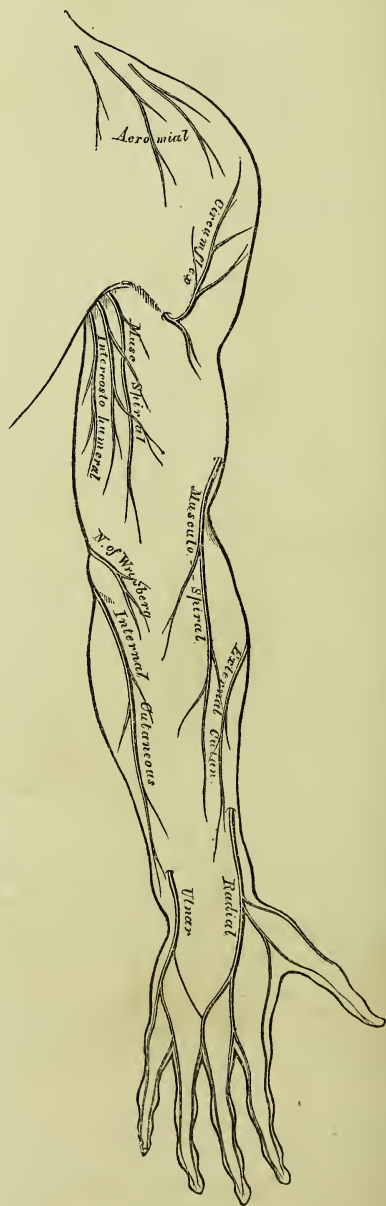 Acromial
Circumflex
Musc Spiral
Intercosto humeral
Musculo-Spiral.
N. of Wrysberg
Internal Cutaneous
External Cutan.
Radial
Ulnar